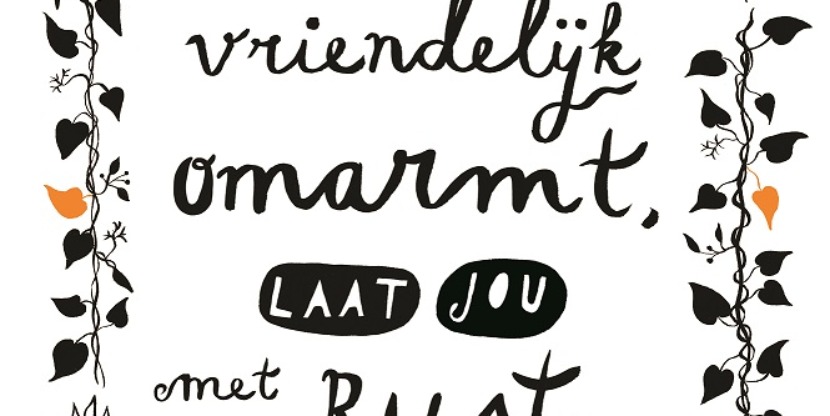 vriendelijk
omarmt,
LAAT JOU
met Rust